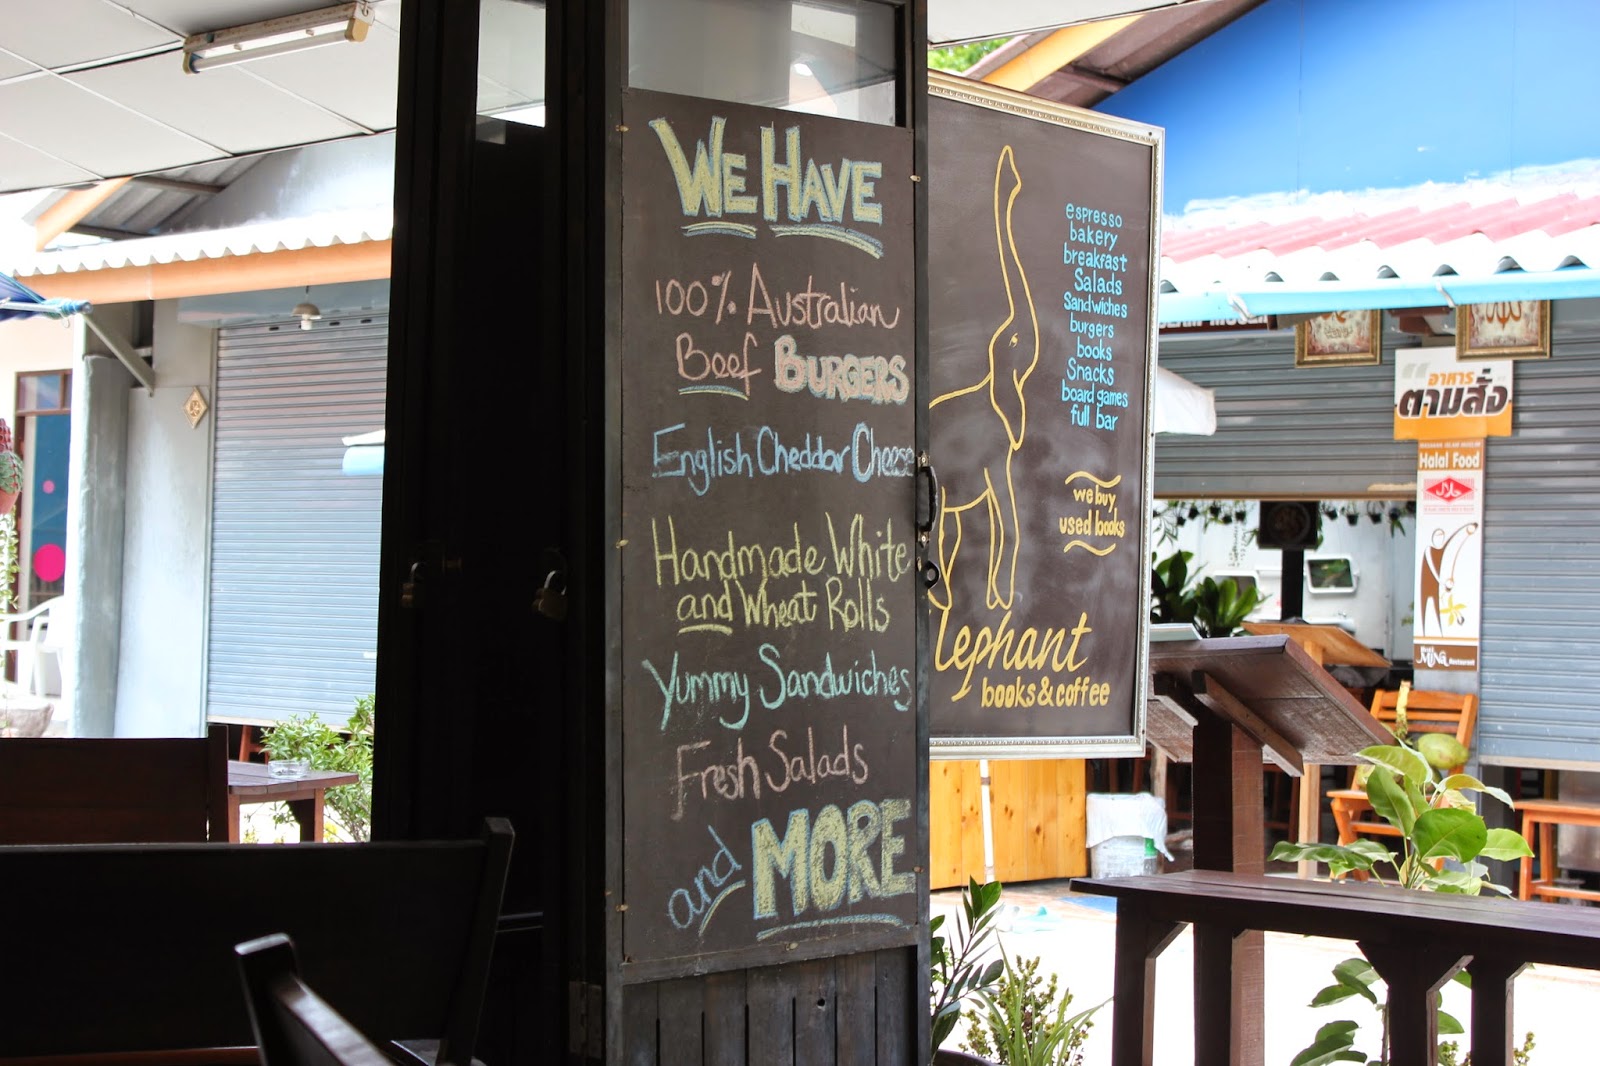 WE HAVE
100% Australian
Beef BURGERS
English Cheddar Cheese
Handmade White
and Wheat Rolls
Yummy Sandwiches
Fresh Salads
and MORE
espresso
bakery
breakfast
Salads
Sandwiches
burgers
books
Snacks
board games
full bar
we buy
used books
lephant
books & coffee
อาหาร
ตามสั่ง
Halal Food
MiNa Restaurant